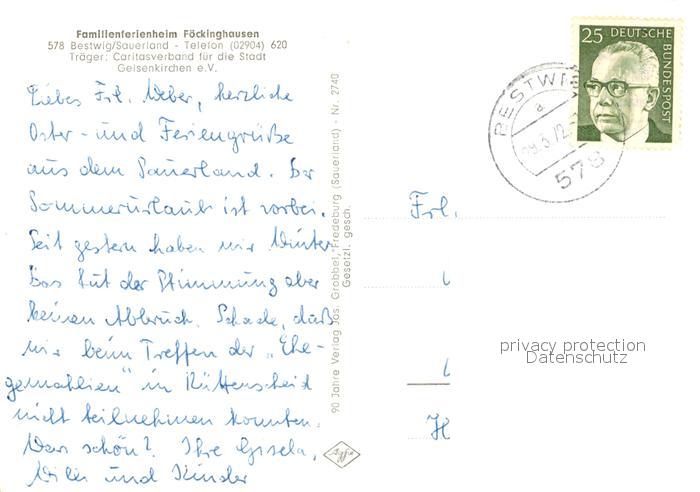 Familienferienheim Föckinghausen
578 Bestwig/Sauerland - Telefon (02904) 620
Träger: Caritasverband für die Stadt
Gelsenkirchen e.V.
Liebes Frl. Weber, herzliche
Oster- und Feriengrüße
aus dem Sauerland. Der
Sommerurlaub ist vorbei.
Seit gestern haben wir Winter
Das tut der Stimmung aber
keinen Abbruch. Schade, daß
wir beim Treffen der „Ehe-
gemahlien" in Rüttenscheid
nicht teilnehmen konnten.
War schön? Ihre Gisela,
Willi und Kinder
90 Jahre Verlag Jos. Grobbel, Fredeburg (Sauerland) - Nr. 2740
Gesetzl. gesch.
Agfa
25 DEUTSCHE
BUNDESPOST
BESTWIG
a
578
Frl.
H
privacy protection
Datenschutz